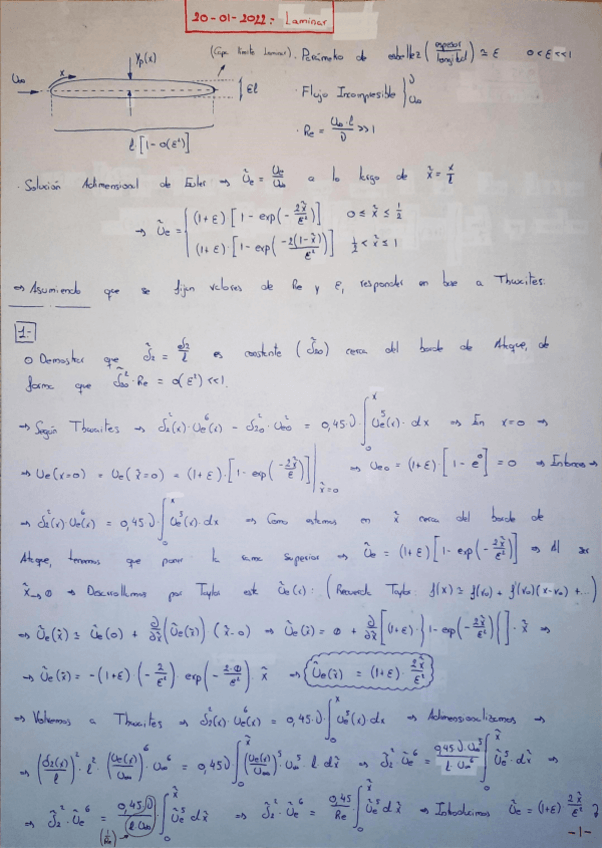 20-01-2022: Laminar
(Capa límite Laminar). Parámetro de esbeltez (espesor/longitud) ≃ ε 0<ε<<1
U∞ x Yp(x) εl
· Flujo Incompresible } ν U∞
· Re = U∞·l/ν >>1
l [1-O(ε²)]
· Solución Adimensional de Euler ⇒ Ũe = Ue/U∞ a lo largo de x̃ = x/l
⇒ Ũe = { (1+ε) [1-exp(-2x̃/ε²)] 0≤x̃≤1/2
(1+ε)·[1-exp(-2(1-x̃)/ε²)] 1/2<x̃≤1
⇒ Asumiendo que se fijan valores de Re y ε, responder en base a Thwaites:
1.-
○ Demostrar que δ̃2 = δ2/l es constante (δ̃20) cerca del borde de Ataque, de
forma que δ̃20²·Re = O(ε²)<<1.
⇒ Según Thwaites ⇒ δ2²(x)·Ue⁶(x) - δ20²·Ue0⁶ = 0,45·ν·∫0^x Ue⁵(x)·dx ⇒ En x=0 ⇒
⇒ Ue(x=0) = Ue(x̃=0) = (1+ε)·[1-exp(-2x̃/ε)]|x̃=0 ⇒ Ue0 = (1+ε)·[1-e⁰] = 0 ⇒ Entonces ⇒
⇒ δ2²(x)·Ue⁶(x) = 0,45·ν·∫0^x Ue⁵(x)·dx ⇒ Como estamos en x̃ cerca del borde de
Ataque, tenemos que poner la rama superior ⇒ Ũe = (1+ε)[1-exp(-2x̃/ε²)] ⇒ Al ser
x̃→0 ⇒ Desarrollamos por Taylor este Ũe(x̃): (Recuerda Taylor: f(x) ≃ f(x0)+f'(x0)(x-x0)+...)
⇒ Ũe(x̃) ≃ Ũe(0) + ∂/∂x̃(Ũe(x̃)) (x̃-0) ⇒ Ũe(x̃) = 0 + ∂/∂x̃[(1+ε)·{1-exp(-2x̃/ε²)}]·x̃ ⇒
⇒ Ũe(x̃) = -(1+ε)·(-2/ε²)·exp(-2·0/ε²)·x̃ ⇒ Ũe(x̃) = (1+ε)·2x̃/ε²
⇒ Volvemos a Thwaites ⇒ δ2²(x)·Ue⁶(x) = 0,45·ν·∫0^x Ue⁵(x)·dx ⇒ Adimensionalizamos ⇒
⇒ (δ2(x)/l)²·l²·(Ue(x)/U∞)⁶·U∞⁶ = 0,45·ν∫0^x̃(Ue(x)/U∞)⁵·U∞⁵·l dx̃ ⇒ δ̃2²·Ũe⁶ = 0,45·ν·U∞⁵/l·U∞⁶ ∫0^x̃ Ũe⁵·dx̃ ⇒
⇒ δ̃2²·Ũe⁶ = 0,45·ν/l·U∞ (1/Re)·∫0^x̃ Ũe⁵ dx̃ ⇒ δ̃2²·Ũe⁶ = 0,45/Re ∫0^x̃ Ũe⁵ dx̃ ⇒ Introducimos Ũe = (1+ε) 2x̃/ε²
-1-